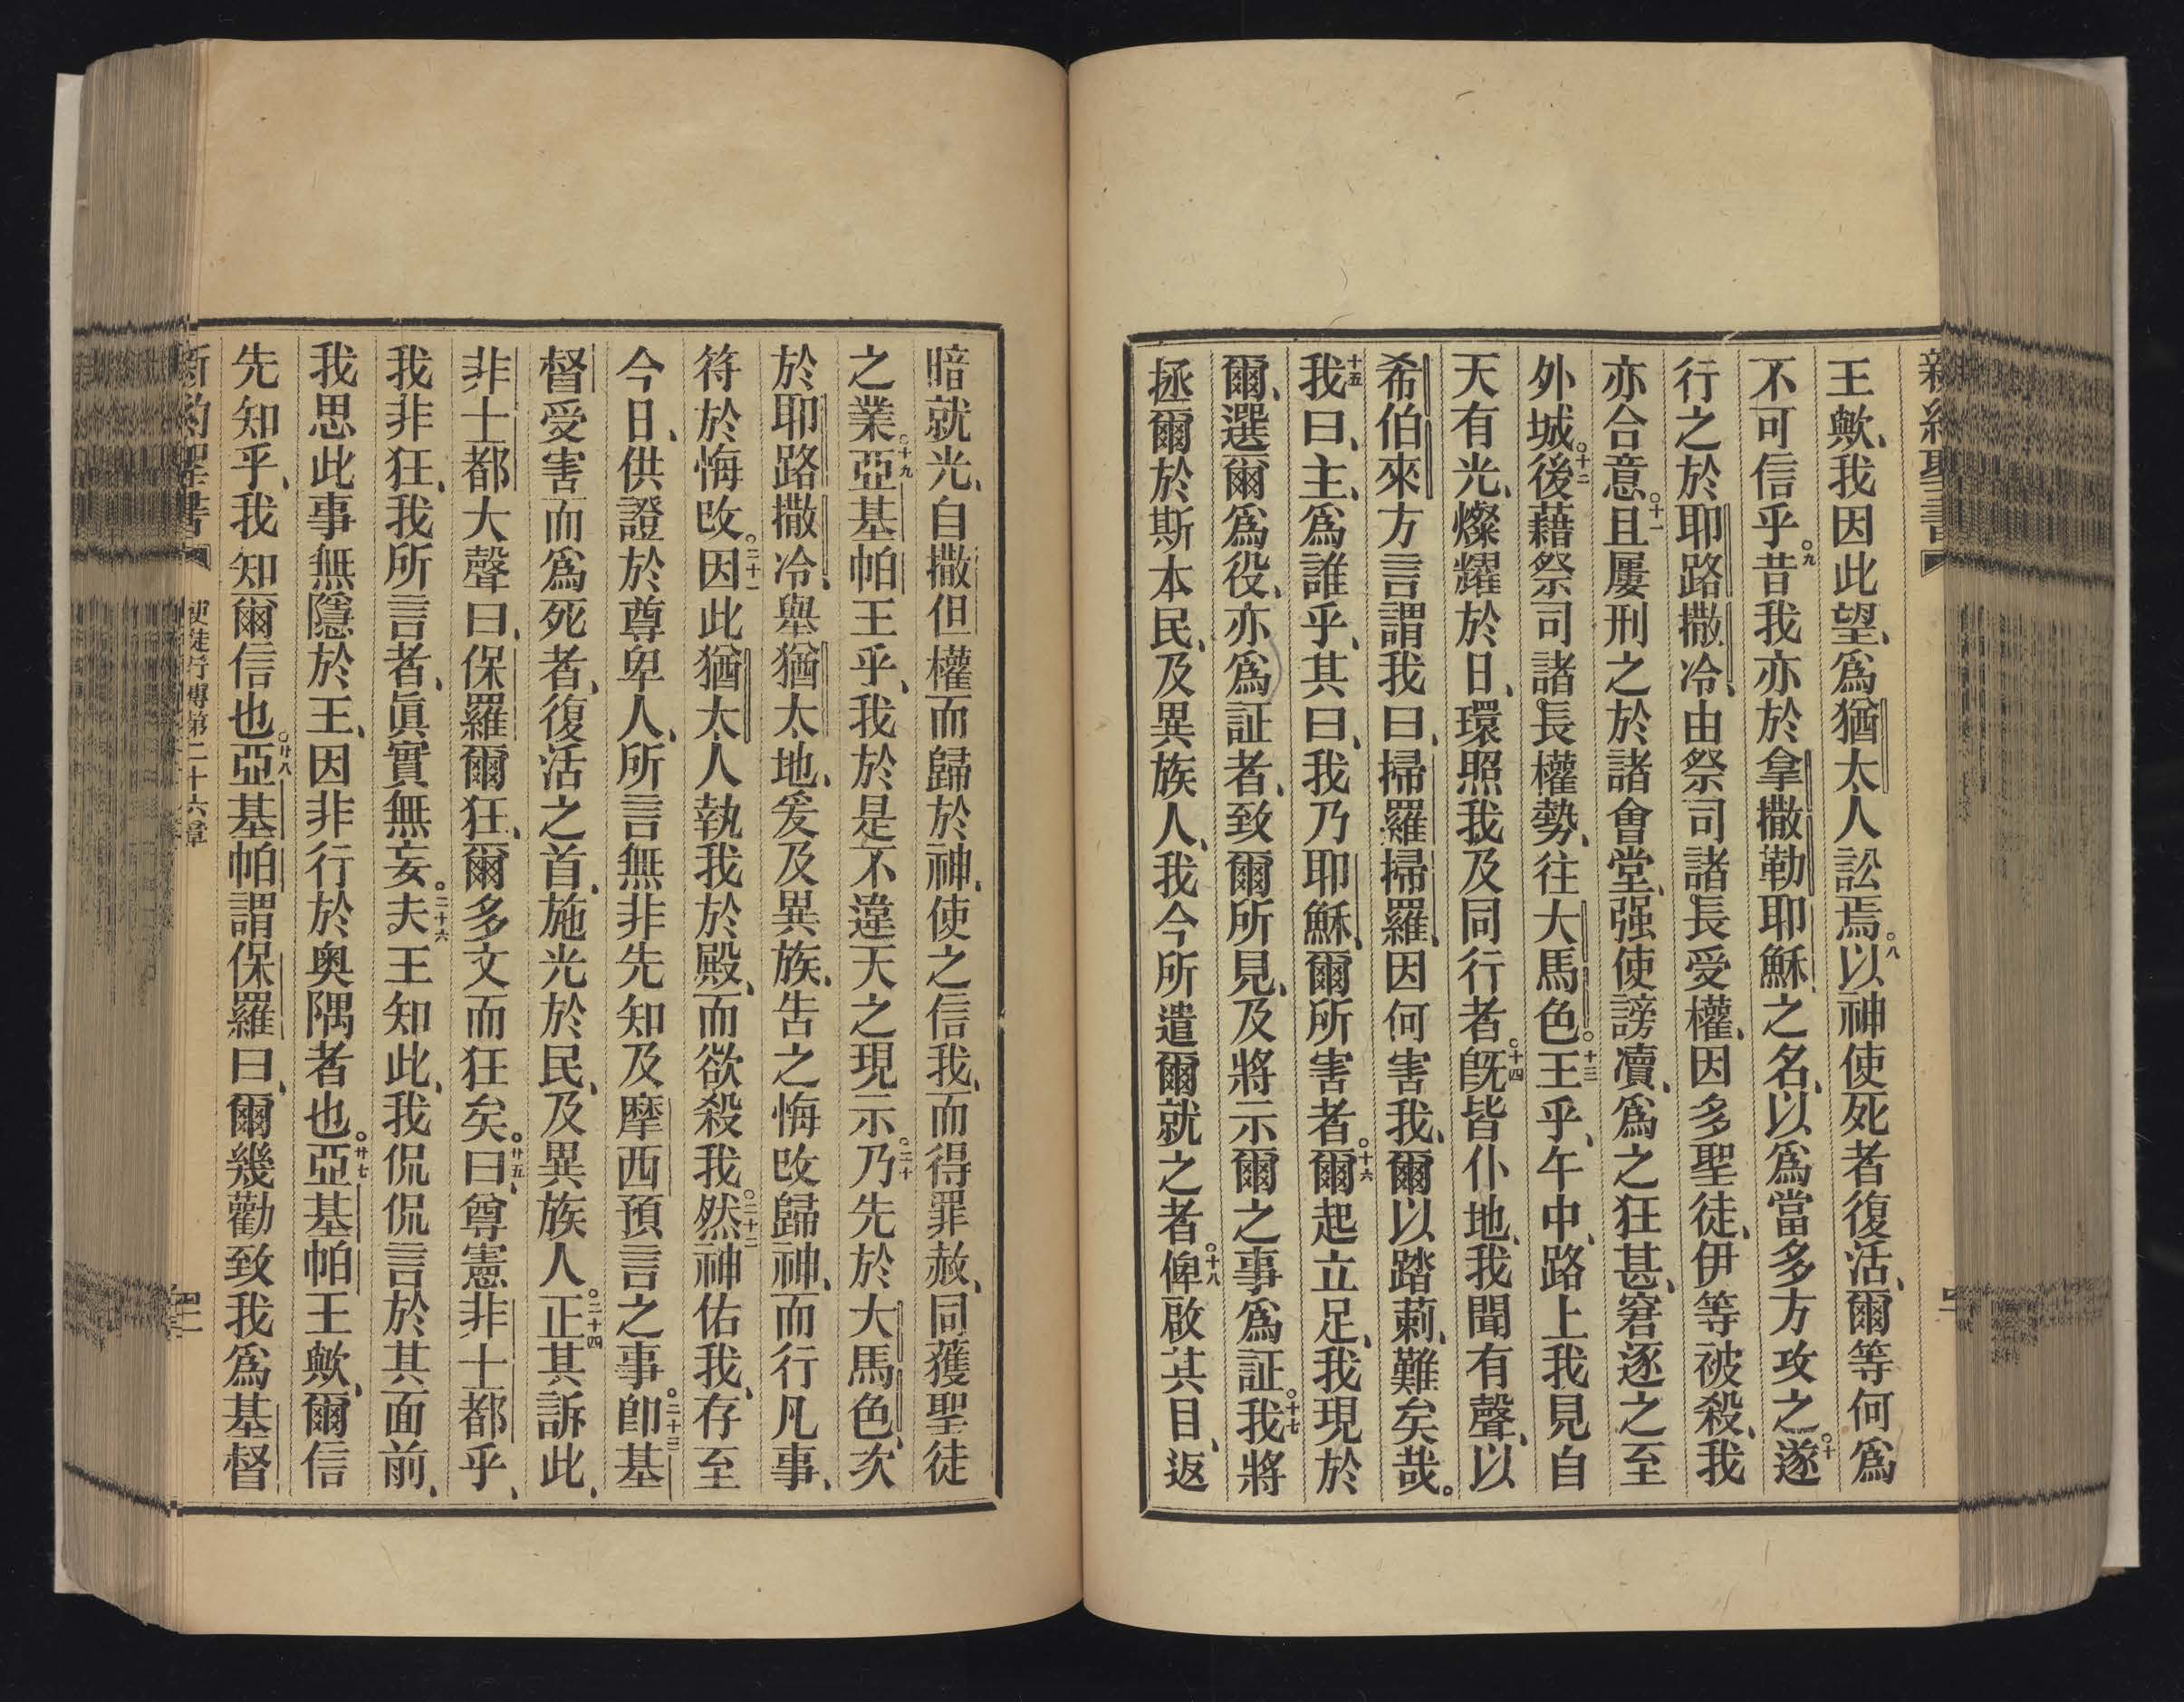 新約聖書
王歟、我因此望、爲猶太人訟焉。八以神使死者復活、爾等何爲
不可信乎。九昔我亦於拿撒勒耶穌之名、以爲當多方攻之。十遂
行之於耶路撒冷、由祭司諸長受權、因多聖徒、伊等被殺、我
亦合意。十一且屢刑之於諸會堂、强使謗凟、爲之狂甚、窘逐之至
外城。十二後藉祭司諸長權勢、往大馬色。十三王乎、午中、路上我見自
天有光、燦耀於日、環照我及同行者。十四既皆仆地、我聞有聲、以
希伯來方言謂我曰、掃羅掃羅、因何害我、爾以踏莿、難矣哉。
十五我曰、主、爲誰乎、其曰、我乃耶穌、爾所害者。十六爾起立足、我現於
爾、選爾爲役、亦爲証者、致爾所見、及將示爾之事爲証。十七我將
拯爾於斯本民、及異族人、我今所遣爾就之者。十八俾啟其目、返
暗就光、自撒但權而歸於神、使之信我、而得罪赦、同獲聖徒
之業。十九亞基帕王乎、我於是不違天之現示。二十乃先於大馬色、次
於耶路撒冷、舉猶太地、爰及異族、告之悔改歸神、而行凡事、
符於悔改。二十一因此猶太人執我於殿、而欲殺我。二十二然神佑我、存至
今日、供證於尊卑人、所言無非先知及摩西預言之事。二十三卽基
督受害而爲死者、復活之首、施光於民、及異族人。二十四正其訴此、
非士都大聲曰、保羅爾狂、爾多文而狂矣。廿五曰、尊憲非士都乎、
我非狂、我所言者、眞實無妄。二十六夫王知此、我侃侃言於其面前、
我思此事無隱於王、因非行於奥隅者也。廿七亞基帕王歟、爾信
先知乎、我知爾信也。廿八亞基帕謂保羅曰、爾幾勸致我爲基督
新約聖書 使徒行傳第二十六章